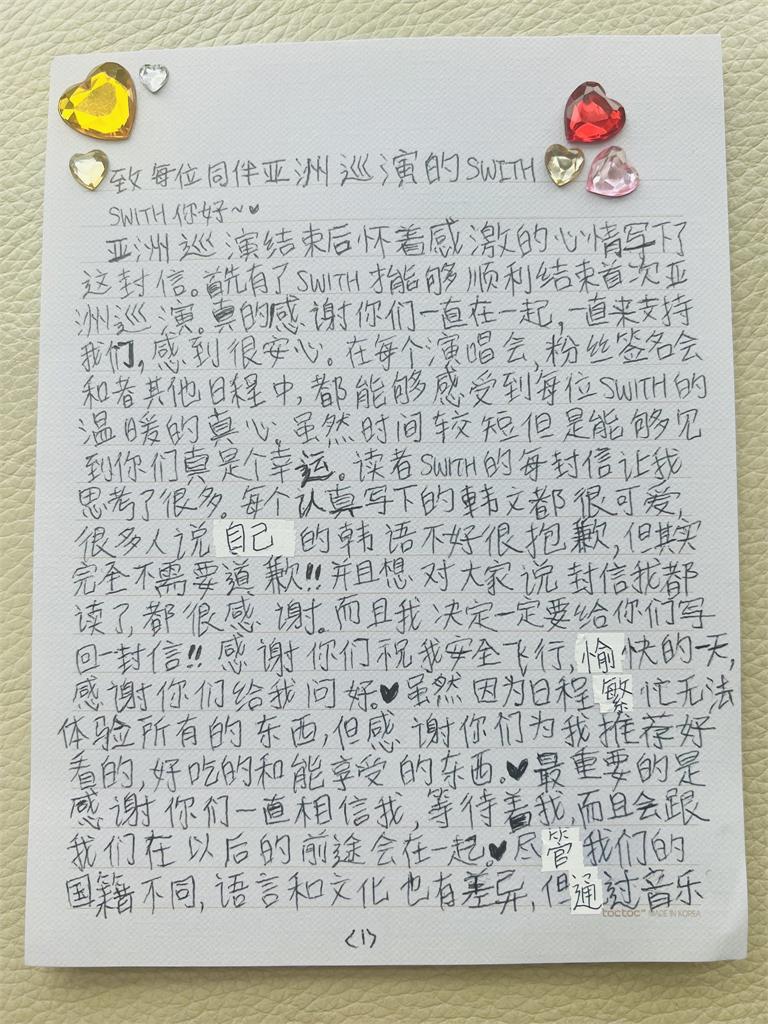 致每位同伴亚洲巡演的SWITH
SWITH 你好~♥
亚洲巡演结束后怀着感激的心情写下了
这封信。首先有了SWITH才能够顺利结束首次亚
洲巡演。真的感谢你们一直在一起,一直来支持
我们,感到很安心。在每个演唱会,粉丝签名会
和者其他日程中,都能够感受到每位SWITH的
温暖的真心。虽然时间较短但是能够见
到你们真是个幸运。读者SWITH的每封信让我
思考了很多。每个认真写下的韩文都很可爱,
很多人说自己的韩语不好很抱歉,但其实
完全不需要道歉!!并且想对大家说封信我都
读了,都很感谢。而且我决定一定要给你们写
回一封信!!感谢你们祝我安全飞行,愉快的一天,
感谢你们给我问好。♥虽然因为日程繁忙无法
体验所有的东西,但感谢你们为我推荐好
看的,好吃的和能享受的东西。♥最重要的是
感谢你们一直相信我,等待着我,而且会跟
我们在以后的前途会在一起。♥尽管我们的
国籍不同,语言和文化也有差异,但通过音乐
toctoc™ MADE IN KOREA
<1>